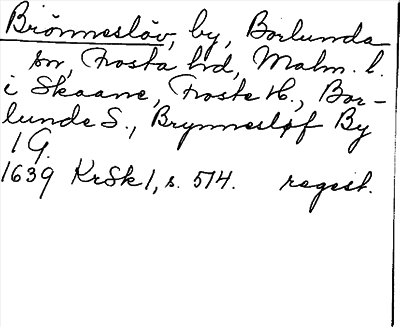 Brönneslöv, by, Borlunda
sn, Frosta hrd, Malm. l.
i Skaane, Froste H., Bor-
lunde S., Brynnesløf By
1 G.
1639 KrSk 1, s. 514. regest.